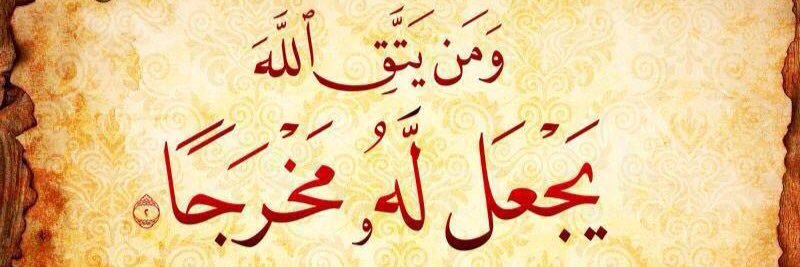 وَمَن يَتَّقِ ٱللَّهَ
يَجْعَل لَّهُۥ مَخْرَجًا ٢